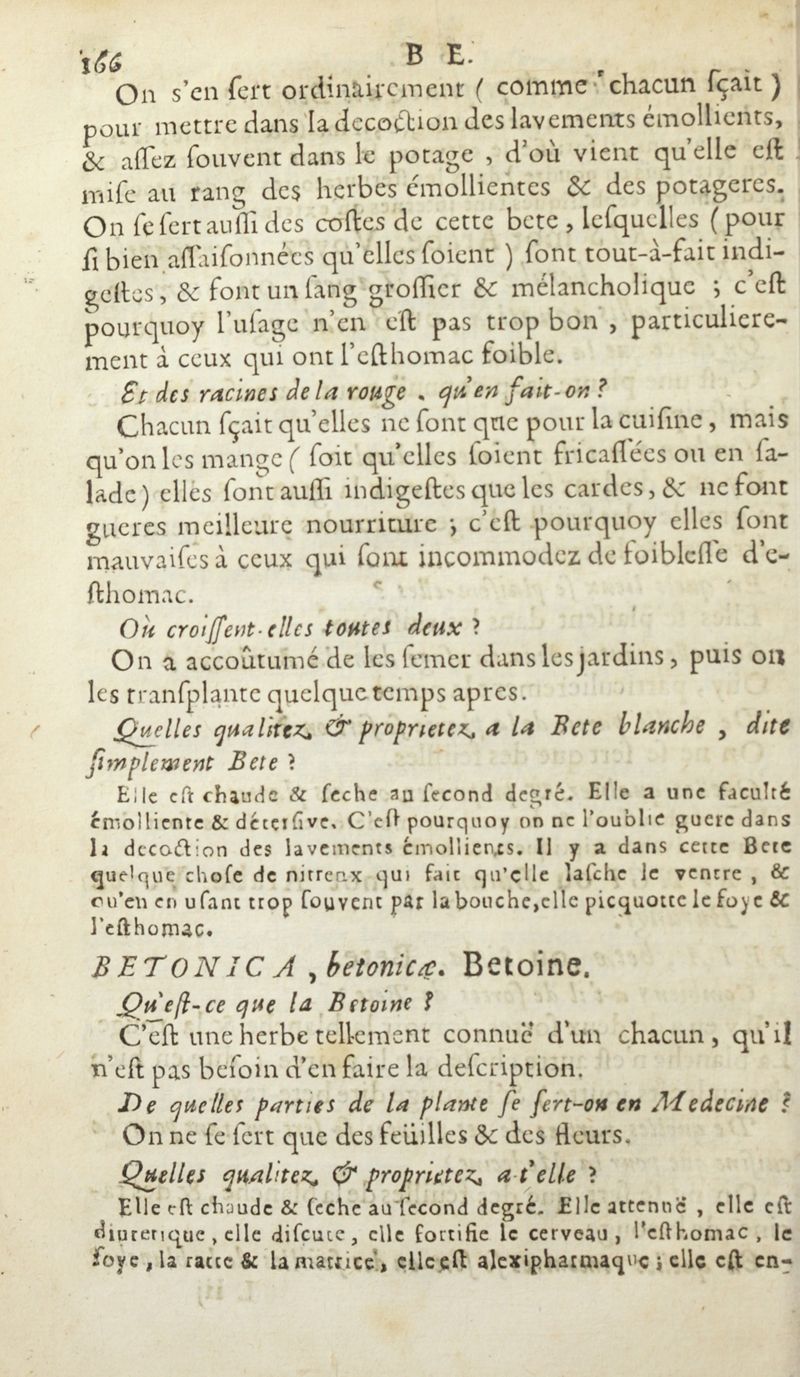 166 B E.
On s'en ſert ordinairement ( comme chacun ſçait )
pour mettre dans la decoction des lavements émollients,
& aſſez ſouvent dans le potage , d'où vient qu'elle eſt
miſe au rang des herbes émollientes & des potageres.
On ſe ſert auſſi des coſtes de cette bete , leſquelles ( pour
ſi bien aſſaiſonnées qu'elles ſoient ) ſont tout-à-fait indi-
geſtes, & font un ſang groſſier & mélancholique ; c'eſt
pourquoy l'uſage n'en eſt pas trop bon , particuliere-
ment à ceux qui ont l'eſthomac foible.
Et des racines de la rouge . qu'en fait-on ?
Chacun ſçait qu'elles ne ſont que pour la cuiſine, mais
qu'on les mange ( ſoit qu'elles ſoient fricaſſées ou en ſa-
lade) elles ſont auſſi indigeſtes que les cardes, & ne font
gueres meilleure nourriture ; c'eſt pourquoy elles ſont
mauvaiſes à ceux qui ſont incommodez de foibleſſe d'e-
ſthomac.
Où croiſſent-elles toutes deux ?
On a accoûtumé de les ſemer dans les jardins, puis on
les tranſplante quelque temps apres.
Quelles qualitez & proprietez a la Bete blanche , dite
ſimplement Bete ?
Elle eſt chaude & ſeche au ſecond degré. Elle a une faculté
émolliente & déterſive. C'eſt pourquoy on ne l'oublie guere dans
la decoction des lavements émollients. Il y a dans cette Bete
quelque choſe de nitreux qui fait qu'elle laſche le ventre , &
qu'en en uſant trop ſouvent par la bouche, elle picquotte le foye &
l'eſthomac.
BETONICA , betonicæ. Betoine.
Qu'eſt-ce que la Betoine ?
C'eſt une herbe tellement connuë d'un chacun, qu'il
n'eſt pas beſoin d'en faire la deſcription.
De quelles parties de la plante ſe ſert-on en Medecine ?
On ne ſe ſert que des feüilles & des fleurs.
Quelles qualitez & proprietez a-t'elle ?
Elle eſt chaude & ſeche au ſecond degré. Elle attenuë , elle eſt
diuretique , elle diſcute, elle fortifie le cerveau , l'eſthomac , le
foye , la ratte & la matrice, elle eſt alexipharmaque ; elle eſt en-